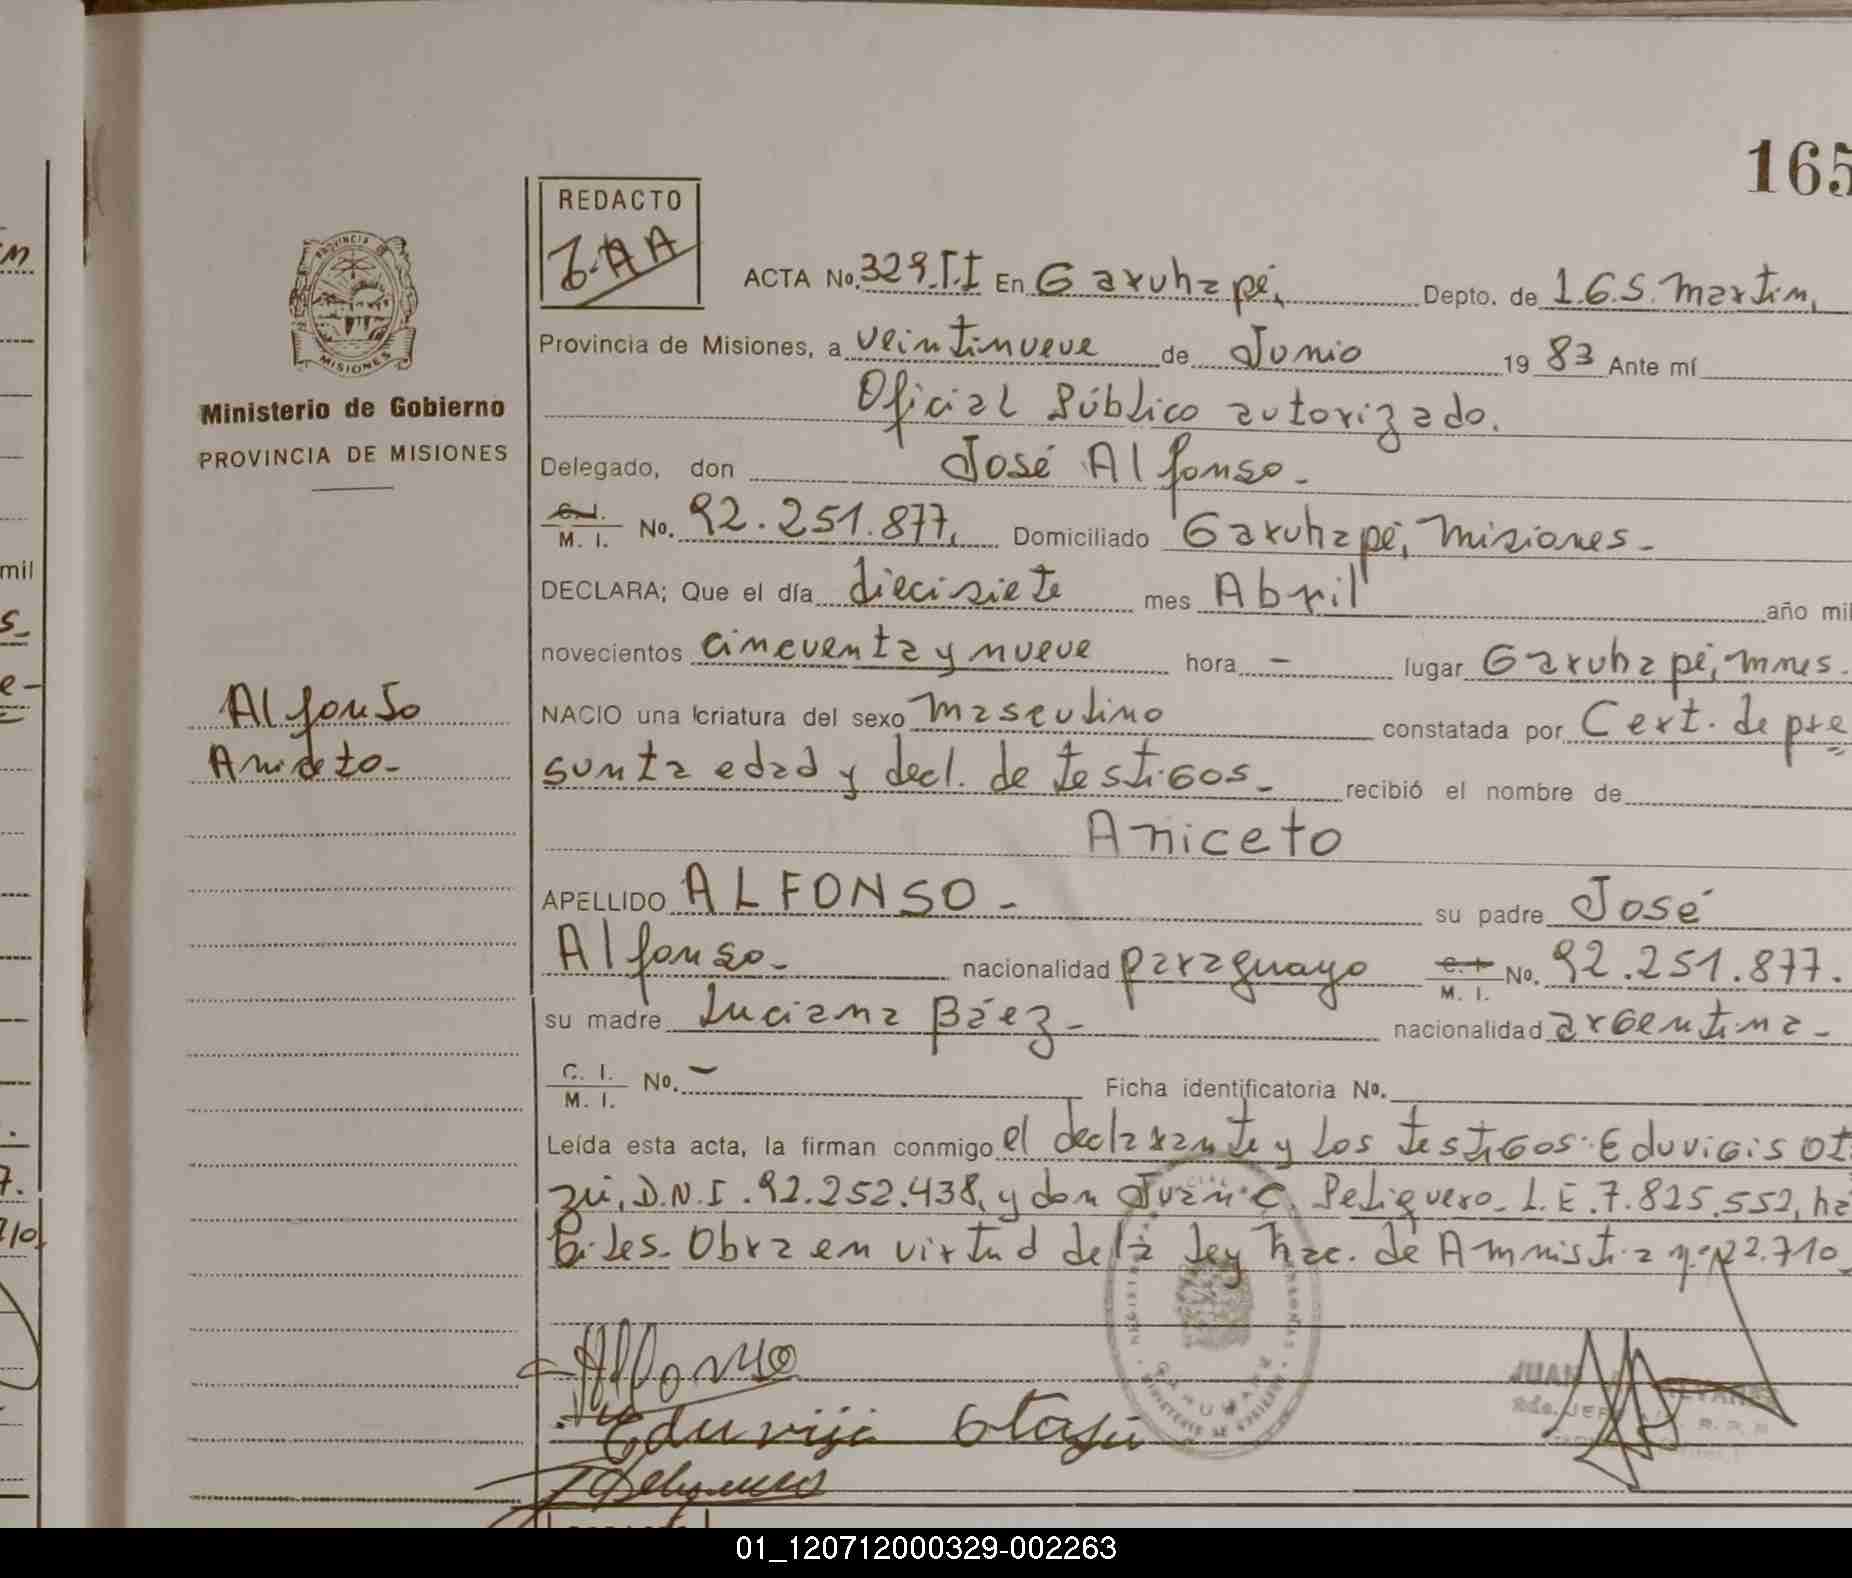 165
REDACTO
ACTA No. 329.T.I En Garuhapé, Depto. de L.G.S. Martin,
Provincia de Misiones, a veintinueve de Junio 1983 Ante mí
PROVINCIA DE
MISIONES
Ministerio de Gobierno
PROVINCIA DE MISIONES
Oficial Público autorizado.
Delegado, don José Alfonso.-
C. I.
M. I. No. 92.251.877, Domiciliado Garuhapé, Misiones.-
DECLARA; Que el día diecisiete mes Abril año mil
novecientos cincuenta y nueve hora - lugar Garuhapé, Mnes.
Alfonso
Aniceto-
NACIO una criatura del sexo masculino constatada por Cert. de pre
sunta edad y decl. de testigos.- recibió el nombre de
Aniceto
APELLIDO ALFONSO - su padre José
Alfonso.- nacionalidad paraguayo C. I.
M. I. No. 92.251.877.
su madre Luciana Báez.- nacionalidad argentina.-
C. I.
M. I. No. - Ficha identificatoria No.
Leída esta acta, la firman conmigo el declarante y los testigos: Eduvigis Ot
zú, D.N.I. 92.252.438, y don Juan C. Peliquero. L.E. 7.825.552, há
biles. Obra en virtud de la Ley Nac. de Amnistia nº 22.710
Alfonso
Eduviji Otazú
JUAN
2do. JEFE
mil
s.
e-
7.
710
01_120712000329-002263